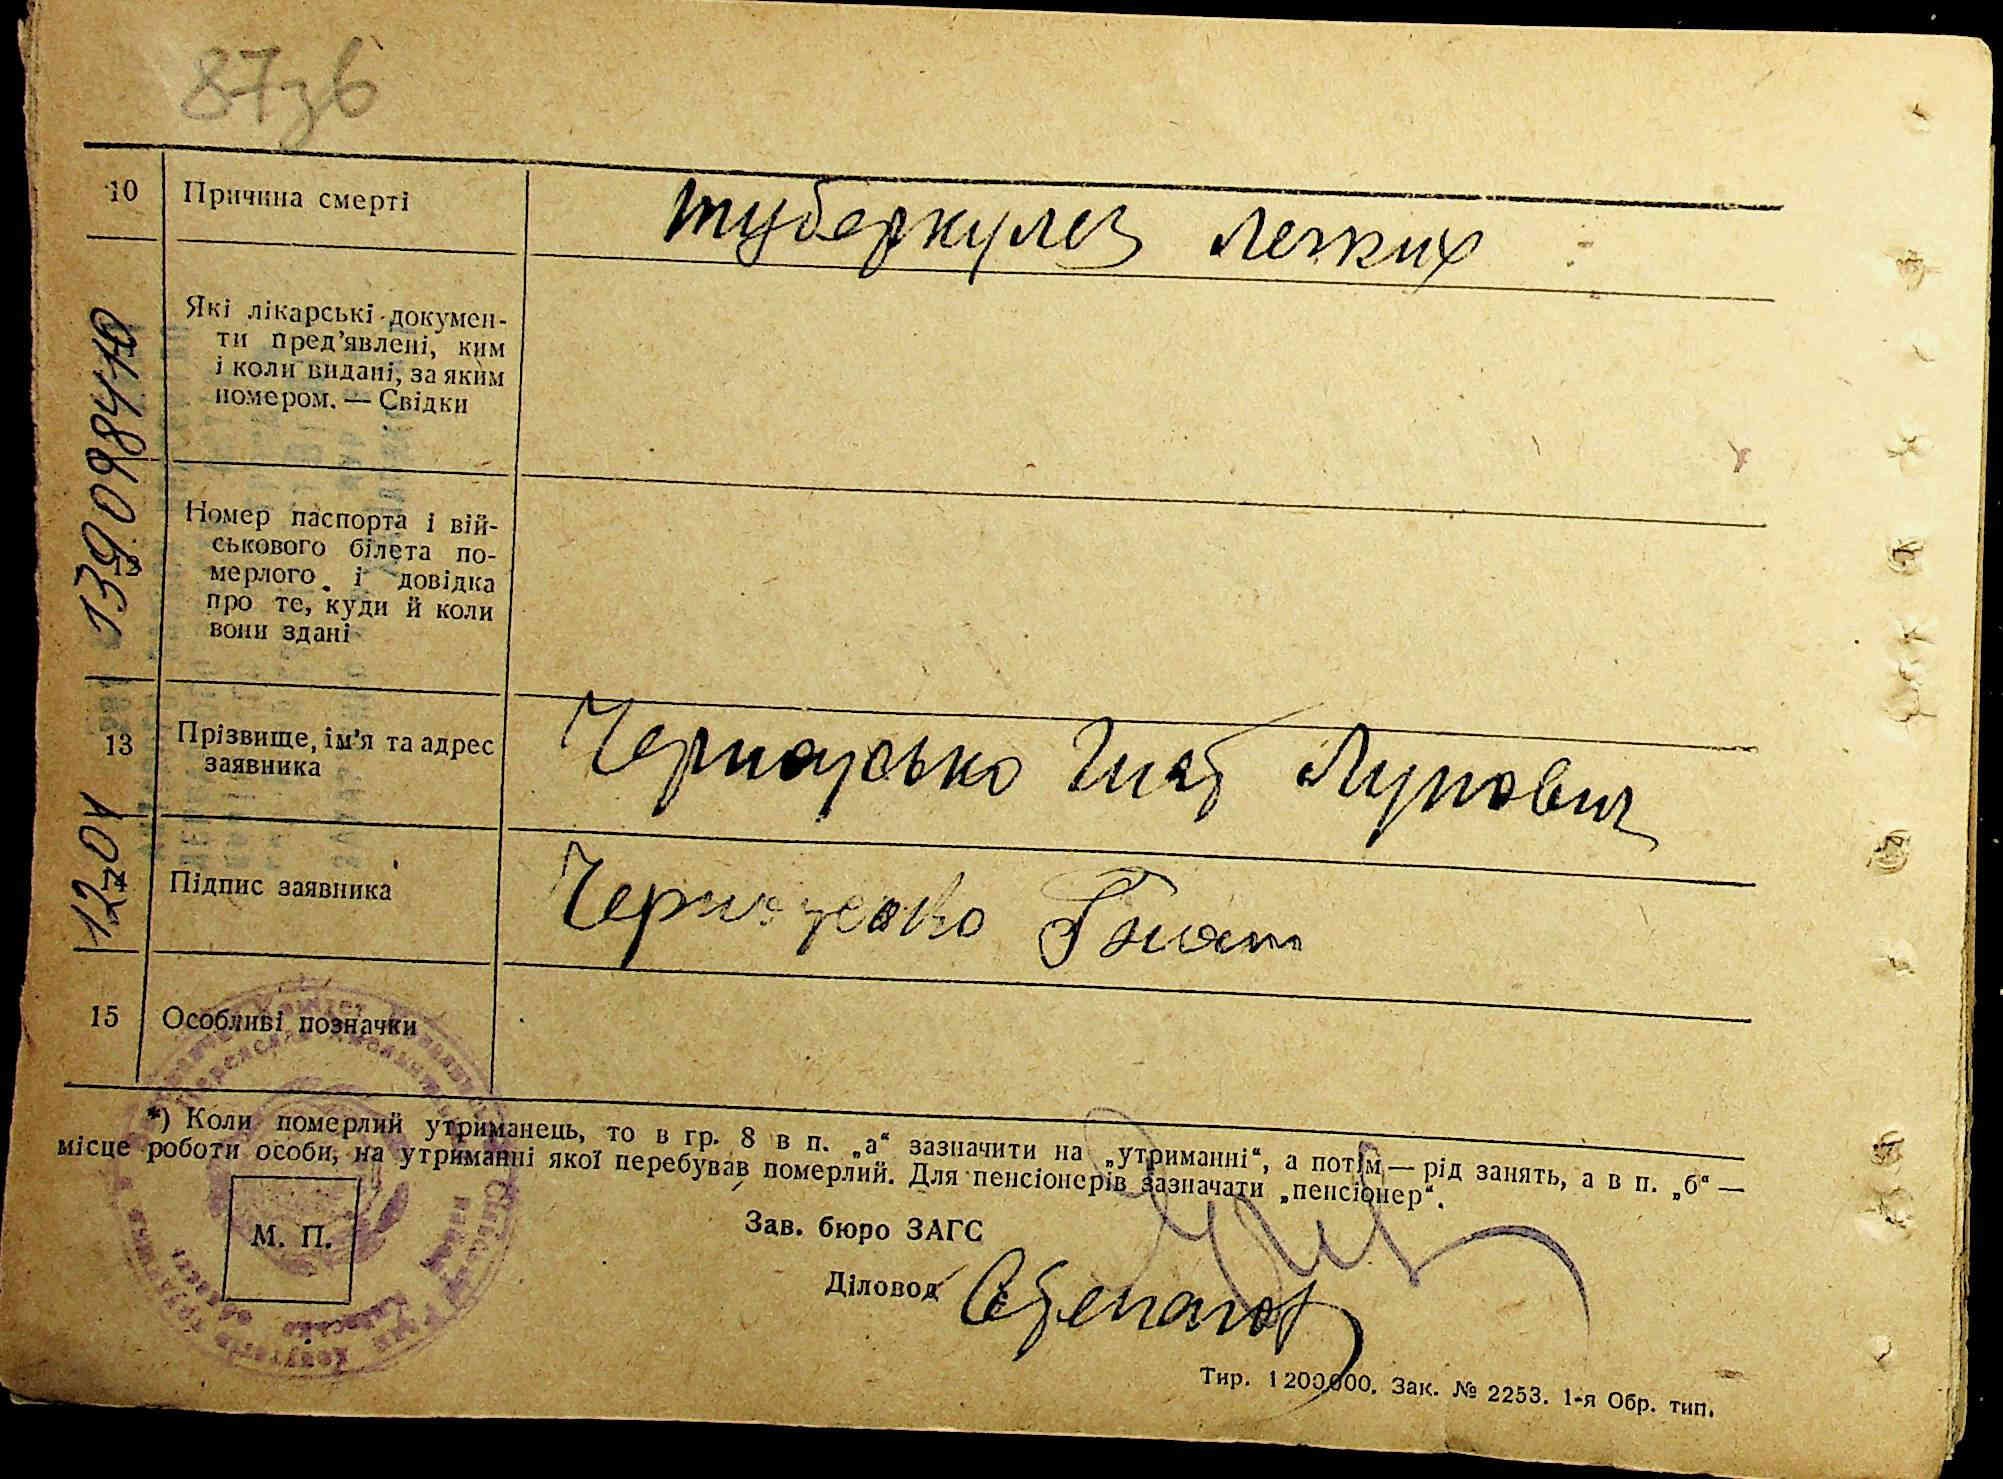 87зв
10 Причина смерті туберкулез легких
Які лікарські докумен-
ти пред'явлені, ким
і коли видані, за яким
номером. — Свідки
Номер паспорта і вій-
ськового білета по-
мерлого і довідка
про те, куди й коли
вони здані
13 Прізвище, ім'я та адрес
заявника
Гнат Лупович
Підпис заявника Гнат
15 Особливі позначки
*) Коли померлий утриманець, то в гр. 8 в п. „а“ зазначити на „утриманні“, а потім — рід занять, а в п. „б“ —
місце роботи особи, на утриманні якої перебував померлий. Для пенсіонерів зазначати „пенсіонер“.
М. П.
Зав. бюро ЗАГС
Діловод
Тир. 1 200 000. Зак. № 2253. 1-я Обр. тип.
1204
139098440